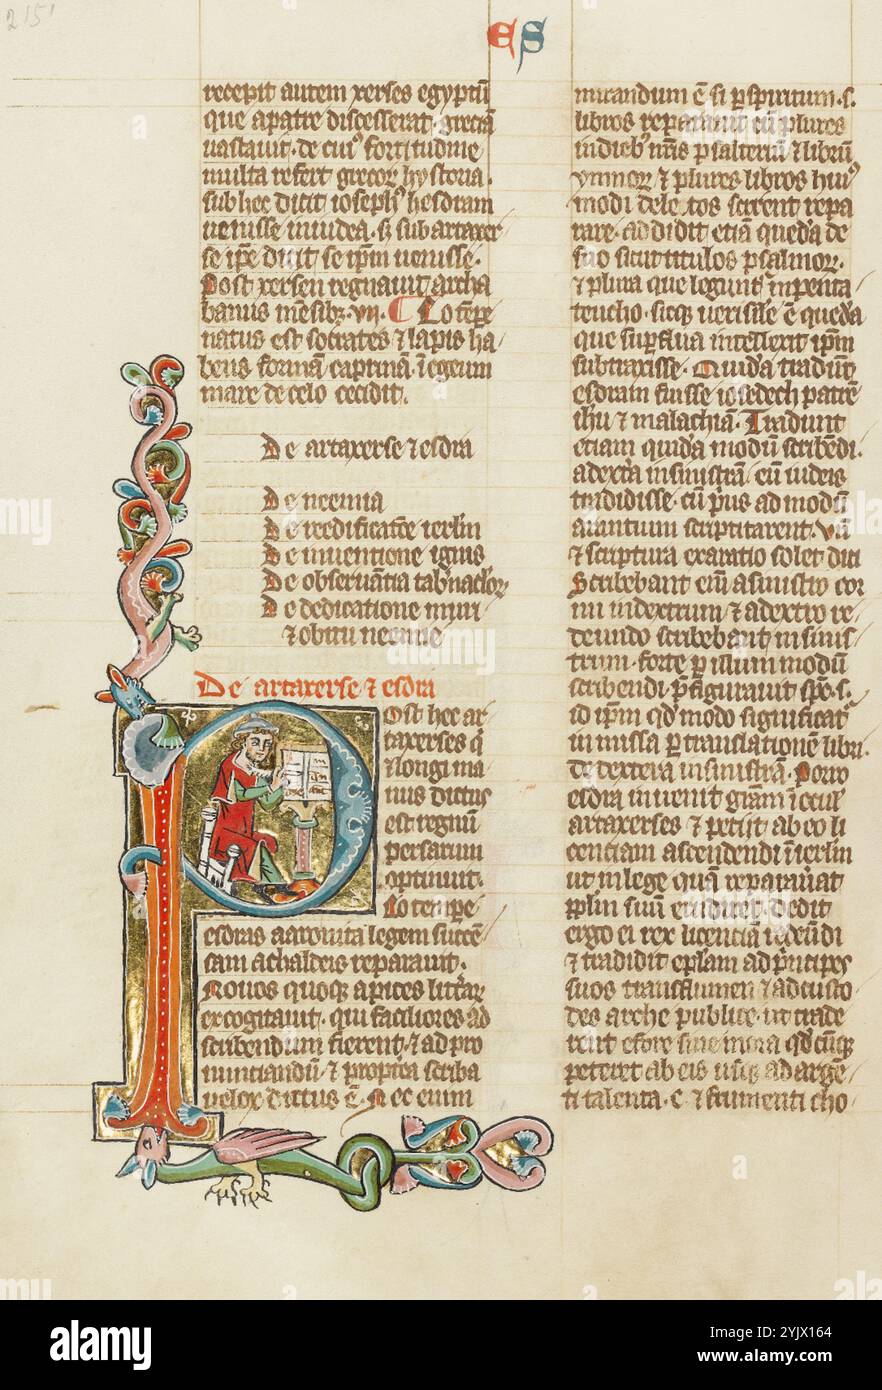 215
ES
recepit autem xerses egyptū
que a patre discesserat. greciā
vastavit. de cuiꝰ fortitudine
multa refert grecoꝝ hystoria.
sub hec dicit iosephꝰ hesdram
venisse in iudea. sꝫ sub artaxer
se ipe dicit se ipm venisse.
Post xersen regnavit archa
banus mēsibꝫ. vii. ¶ Eo tēpe
natus est socrates ⁊ lapis ha
bens formam
mare de celo cecidit.
De artaxerse ⁊ esdra
De neemia
De reedificatōe ierlm
De inventione ignis
De observātia tabnacloꝝ
De dedicatione muri
⁊ obitu neemie
De artaxerse ⁊ esdra
Post hec ar
taxerses q̇
⁊ longi ma
nus dictus
est regnū
persarum
optinuit.
Eo tempe
esdras aaronita legem succē
sam a chaldeis reparavit.
Novos quoqꝫ apices litērar
excogitavit. qui faciliores ad
scribendum fierent. ⁊ ad pro
nunciandū. ⁊ propterea scriba
velox dictus ē. Nec enim
mirandum ē si p spiritum. s.
libros reparavit cū plures
in dieb nr̄is psalteriū ⁊ librū
ymnoꝝ ⁊ plures libros huiꝰ
modi deletos scirent repa
rare. addidit etiā queda de
suo sicut titulos psalmoꝝ.
⁊ plura que legunt in penta
teucho. sicqꝫ verisile ē queda
que supflua intellexit ipm
subtraxisse. Quida tradunt
esdram fuisse iosedech patrē
ihu ⁊ malachiā. Tradunt
etiam quida modū scribēdi.
a dextra in sinistrā. eū iudeis
tradidisse. cū pus ad modū
arantium scriptitarent. Vn̄
⁊ scriptura exaratio solet dici
Scribebant eim a sinistro cor
nu in dextrum. ⁊ a dextro re
deundo scribebant in sinis
trum. forte p illum modū
scribendi. p̄figuravit spc. s.
id ipm qd modo significat
in missa p translationē libri
de dextera in sinistrā. Porro
esdra invenit grām ī ocul
artaxerses ⁊ petiit ab eo li
centiam ascendendi ī ierlm
ut in lege quā reparaverat
pplm suū erudiret. Dedit
ergo ei rex licentiā redeūdi
⁊ tradidit eplam ad p̄ncipes
suos transflumen ⁊ ad custo
des arche publice. ut trade
rent esdre sine mora qdcūqꝫ
peteret ab eis usqꝫ ad argē
ti talenta. c. ⁊ frumenti cho
alamy
Image ID: 2YJX164
www.alamy.com